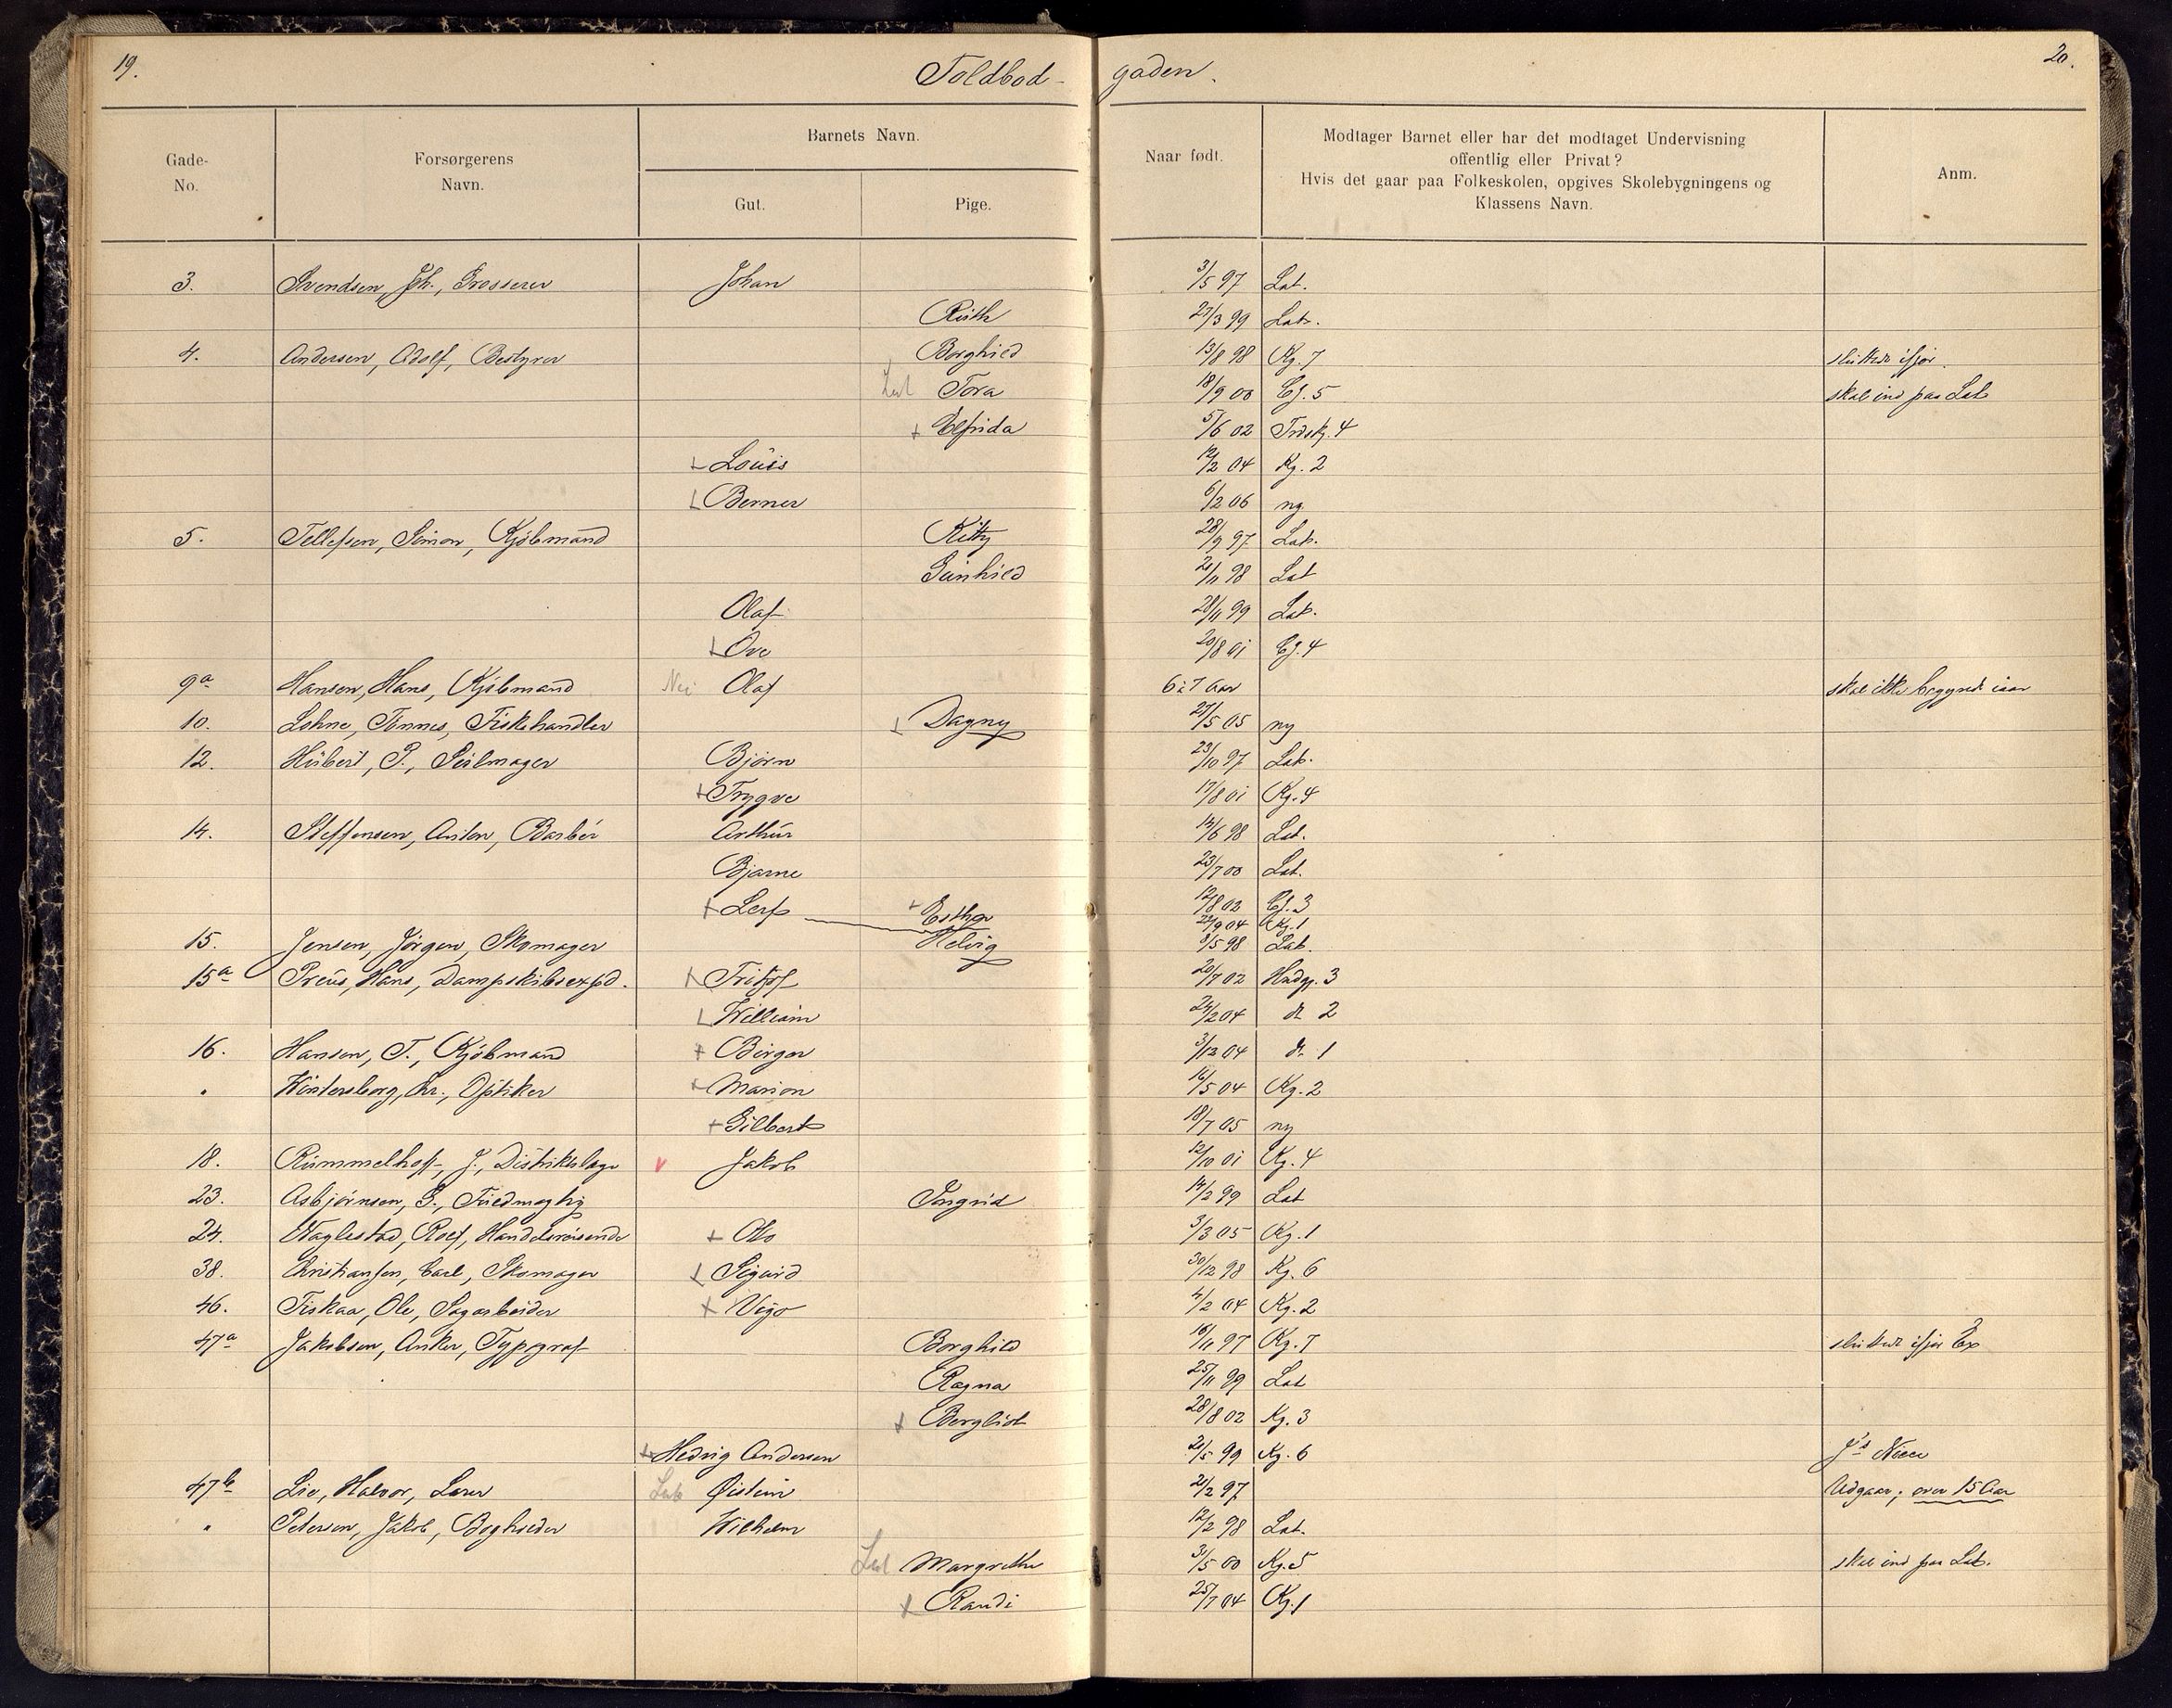 19.
Toldbod-gaden.
20.
Gade-No.
Forsørgerens Navn.
Barnets Navn.
Gut.
Pige.
Naar født.
Modtager Barnet eller har det modtaget Undervisning
offentlig eller Privat?
Hvis det gaar paa Folkeskolen, opgives Skolebygningens og
Klassens Navn.
Anm.
3. Svendsen, Joh., Grosserer Johan 3/5 97 Lat.
Ruth 27/3 99 Lat.
4. Andersen, Adolf, Bestyrer Borghild 13/8 98 Kg. 7 sluttede ifjor.
Lat Tora 18/9 00 Bj. 5 skal ind paa Lat
+ Elfrida 5/6 02 Trdsk. 4
+ Louis 12/2 04 Kg. 2
Berner 6/2 06 ny
5. Tellefsen, Simon, Kjøbmand Kitty 28/9 97 Lat.
Gunhild 2/11 98 Lat
Olaf 28/11 99 Lat.
Ove 20/8 01 Bj. 4
9a Hansen, Hans, Kjøbmand Nei Olaf 6 à 7 Aar skal ikke begynde iaar
10. Lohne, Tønnes, Fiskehandler Dagny 27/5 05 ny
12. Hubert, P., Seilmager Bjørn 23/10 97 Lat.
+ Trygve 17/8 01 Kg. 4
14. Steffensen, Anton, Barbér Arthur 14/6 98 Lat.
Bjarne 23/7 00 Lat.
+ Leif 12/8 02 Bj. 3
+ Esther 22/9 04 Kg. 1
15. Jensen, Jørgen, Skomager Helvig 8/5 98 Lat.
15a Preus, Hans, Dampskibsexped. + Fritjof 20/7 02 Hadg. 3
William 24/2 04 do 2
16. Hansen, T., Kjøbmand + Birger 3/12 04 do 1
" Wintersborg, Chr., Optiker + Marion 16/5 04 Kg. 2
+ Gilbert 18/7 05 ny
18. Rummelhoff, J., Distriktslæge v Jakob 12/10 01 Kg. 4
23. Asbjørnsen, G., Fuldmægtig Ingrid 14/2 99 Lat
24. Naglestad, Rolf, Handelsreisende + Olo 3/3 05 Kg. 1
38. Christiansen, Carl, Skomager Sigurd 30/12 98 Kg. 6
46. Fiskaa, Ole, Sagarbeider + Vigo 4/2 04 Kg. 2
47a Jakobsen, Anker, Typograf Borghild 16/11 97 Kg. 7 sluttede ifjor Ex
Ragna 25/11 99 Lat
+ Bergliot 28/8 02 Kg. 3
+ Hedvig Andersen 21/5 99 Kg. 6 J's Niece
47b Lie, Halvor, Lærer Lat Øistein 21/2 97 Udgaar; over 15 Aar
" Petersen, Jakob, Bogholder Wilhelm 12/2 98 Lat.
Lat Margrethe 31/5 00 Kg. 5 skal ind paa Lat.
+ Randi 25/7 04 Kg. 1